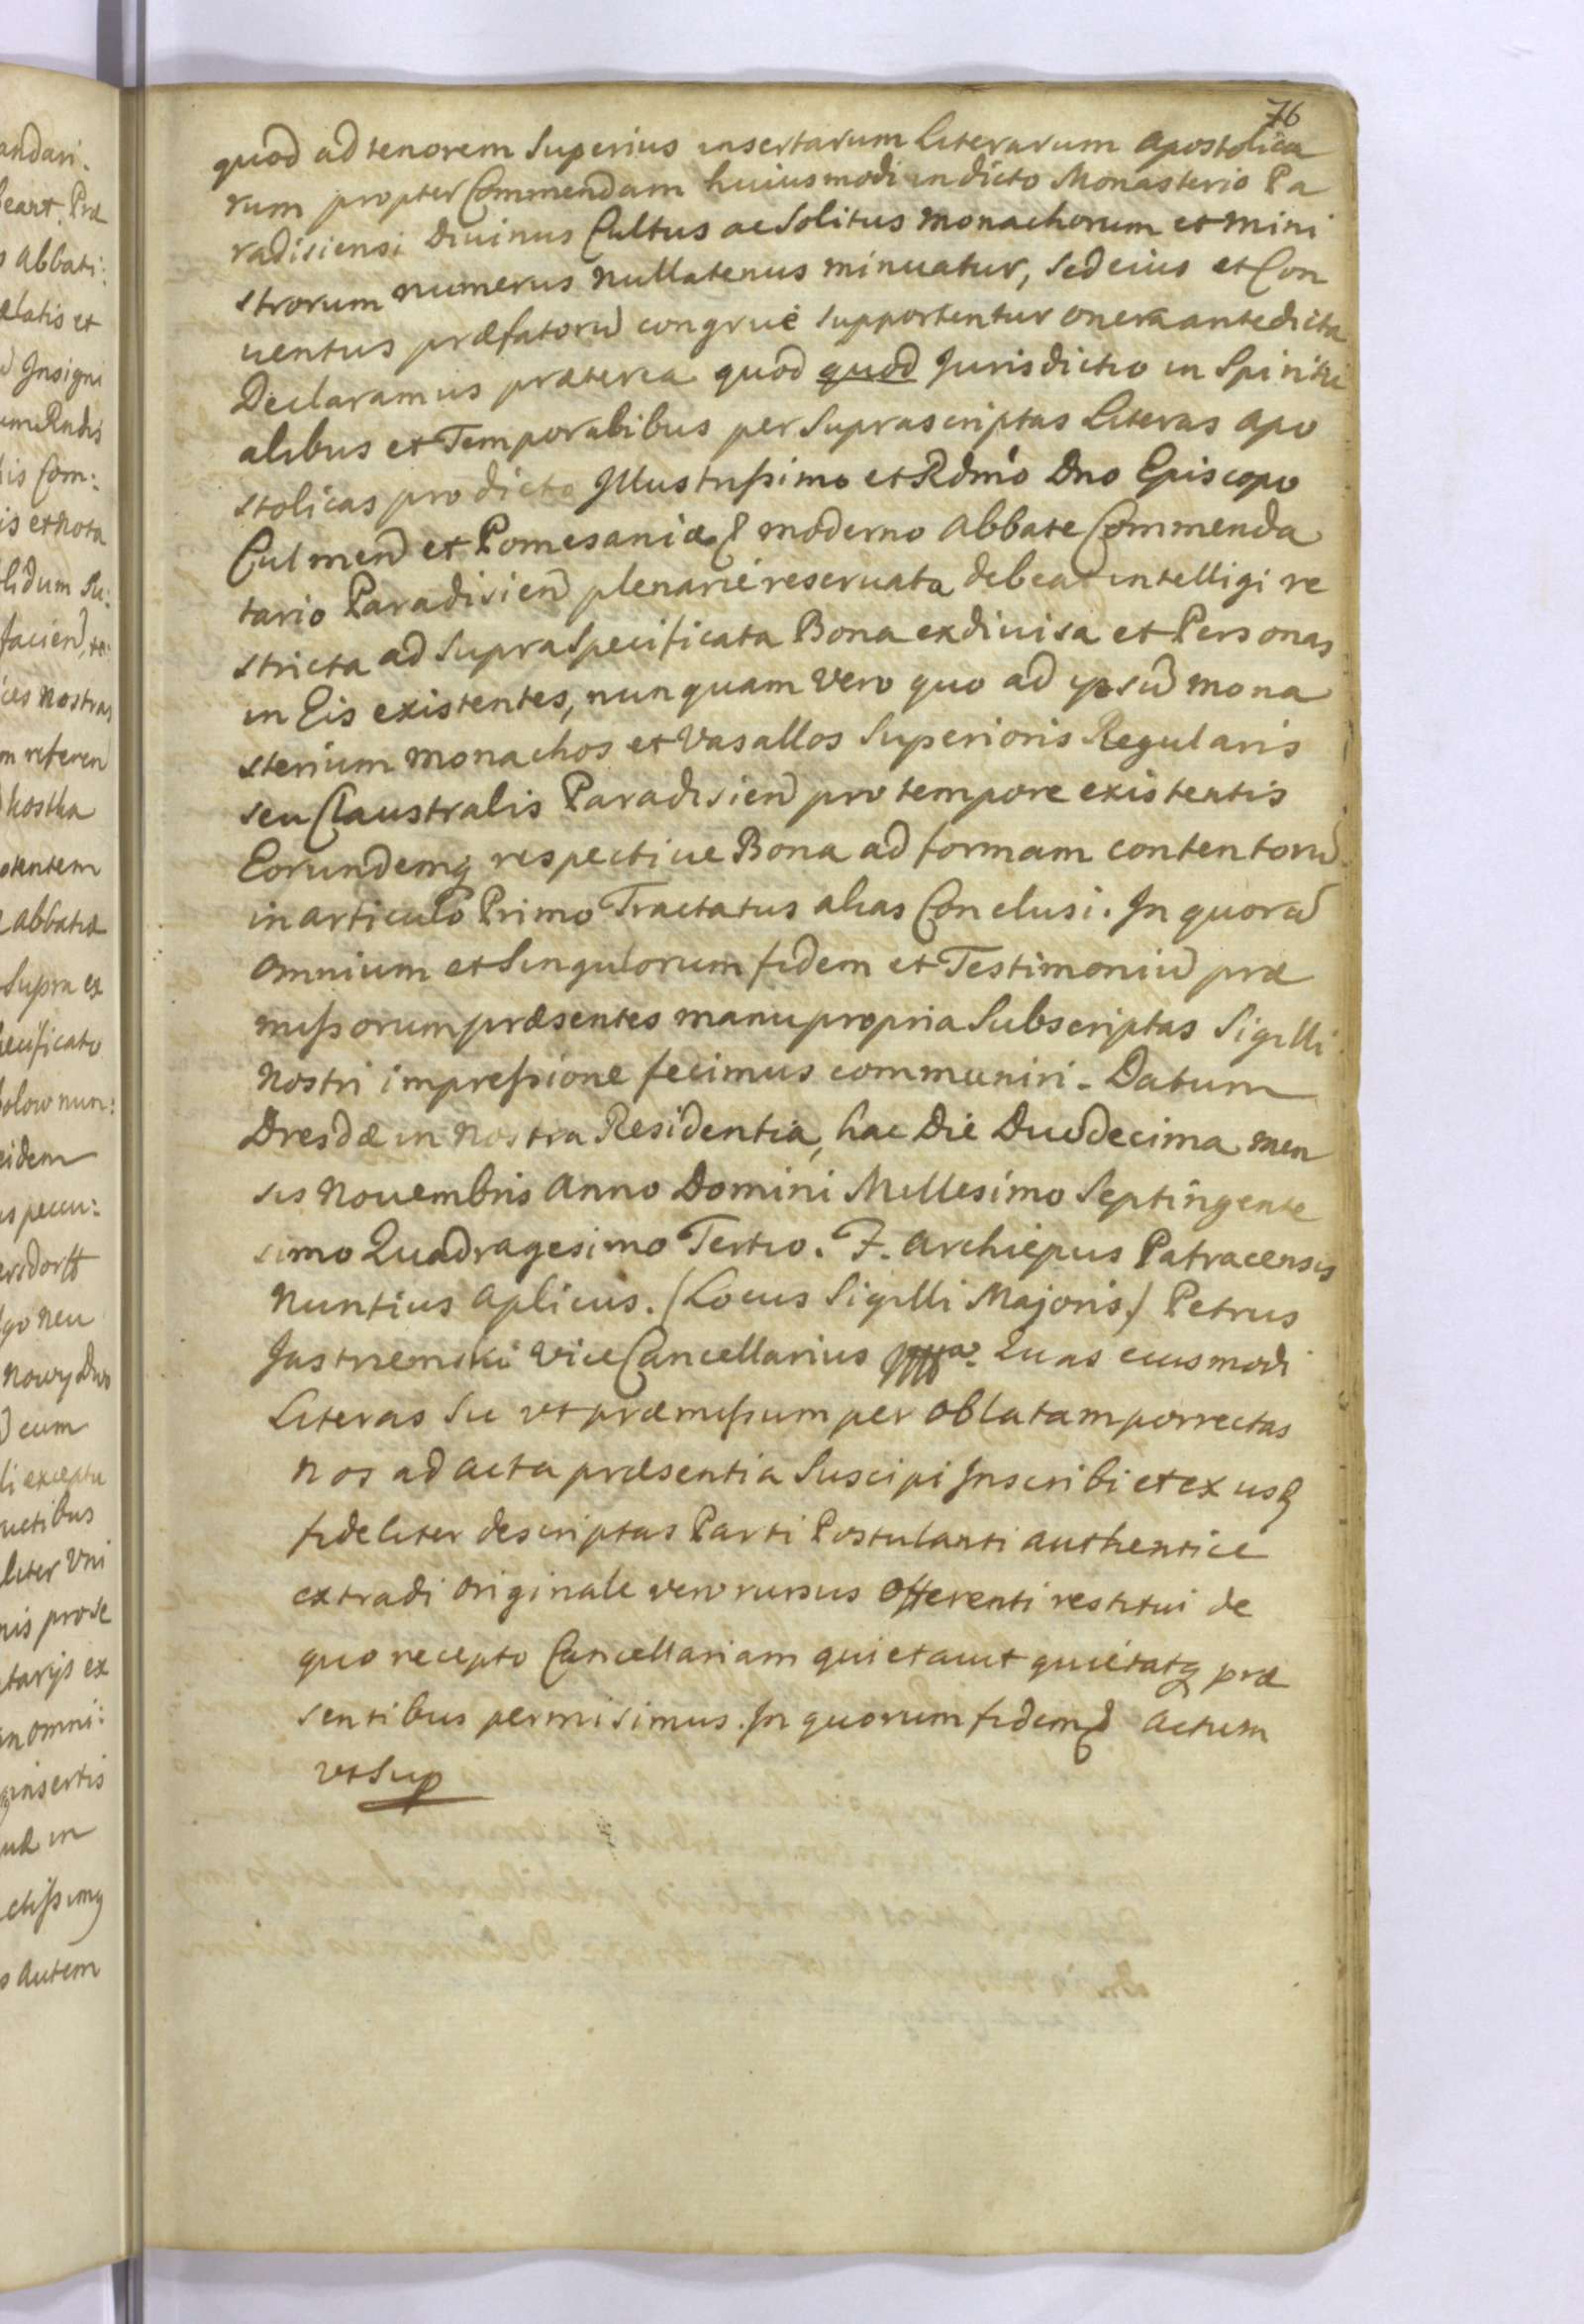 76
quod ad tenorem Superius insertarum Literarum Apostolica
rum propter Commendam huiusmodi in dicto Monasterio Pa
radisiensi Divinus Cultus ac Solitus Monachorum et Mini
strorum numerus nullatenus minuatur, sed eius et Con
uentus præfatorũ congruè supportentur onera antedicta
Declaramus præterea quod quod Jurisdictio in Spiritu
alibus et Temporalibus per Suprascriptas Literas Apo
stolicas pro dicto Jllustrissimo et Rdmo Dno Episcopo
Culmen et Pomesaniæ moderno Abbate Commenda
tario Paradisien plenariè reseruata debeat intelligi re
stricta ad Supra Specificata Bona exdiuisa et Personas
in Eis existentes, nunquam vero quo ad ipsũ Mona
sterium Monachos et Vasallos Superioris Regularis
seu Claustralis Paradisien pro tempore existentis
Eorundemq respectiue Bona ad formam contentorũ
in articulo Primo Tractatus alias Conclusi. Jn quorũ
omnium et Singulorum fidem et Testimoniũ præ
missorum præsentes manu propria Subscriptas Sigilli
Nostri impressione fecimus communiri. Datum
Dresdæ in Nostra Residentia, hac Die Duodecima men
sis Nouembris Anno Domini Millesimo Septingente
simo Quadragesimo Tertio. F. Archiepus Patracensis
Nuntius Aplicus. (Locus Sigilli Majoris) Petrus
Jastrzemski ViceCancellarius Quas eiusmodi
Literas Sic ut præmissum per Oblatam porrectas
Nos ad acta præsentia Suscipi Jnscribi et ex usq
fideliter descriptas Parti Postulanti authentice
extradi Originale vero rursus Offerenti restitui de
quo recepto Cancellariam quietauit quietatq præ
sentibus permisimus. Jn quorum fidem Actum
ut Sup
andari.
beant. Præ
s Abbati:
ælatis et
Jnsigni
is Com:
is et nota
lidum Su:
facien
ces nostras
m referen
kostka
otentem
Abbatiæ
Supra ex
ecificato
olow nun:
eidem
s pecu:
ersdorff
go neu
Nowy Dwo
cum
li exceptu
uctibus
liter Uni
nis prose
tarijs ex
in omni:
insertis
uæ in
ctissimq
s autem